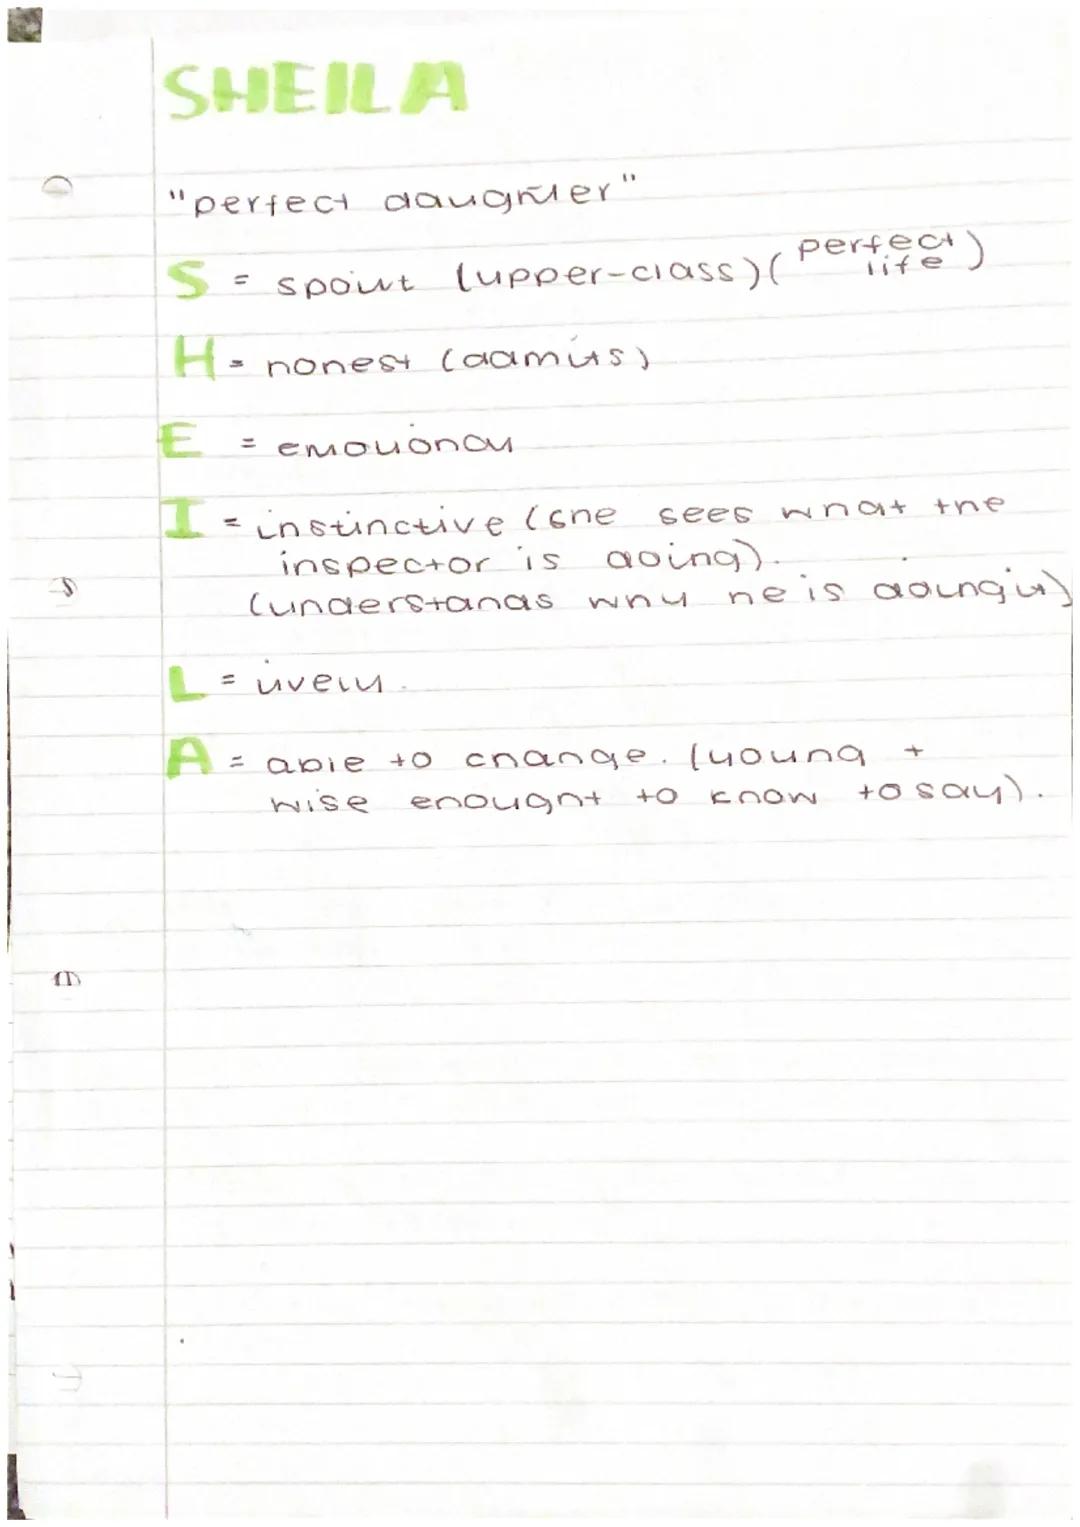 SHEILA
"perfect daughter"
S = spoilt (upper-class) (perfect life)
H = honest (admits)
E = emotional
I = instinctive (she sees what the
inspector is doing).
(understands why he is doing it)
L = lively.
A = able to change. (young +
wise enought to know to say).